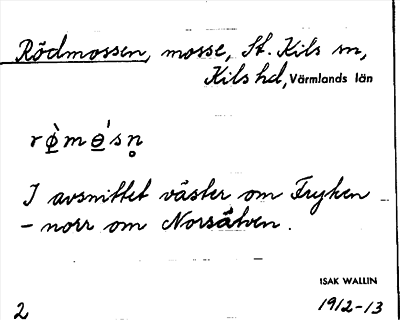 Rödmossen, mosse, St. Kils sn,
Kils hd, Värmlands län
rø̀mɵ̀sn̥
I avsnittet väster om Fryken
– norr om Norsälven.
ISAK WALLIN
2
1912-13